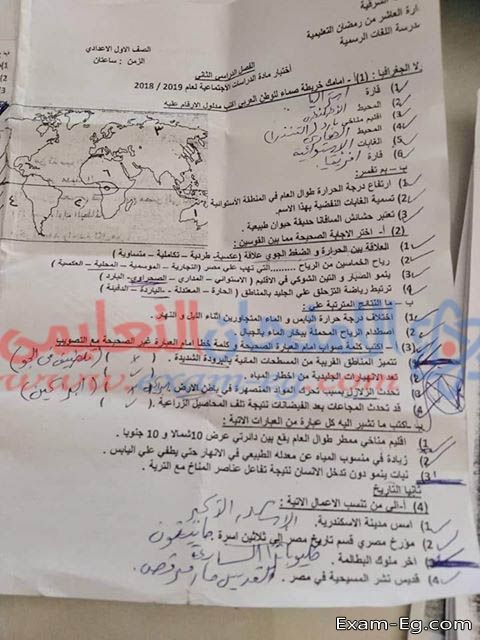 الشرقية
ارة العاشر من رمضان التعليمية
درسة اللغات الرسمية
الصف الاول الاعدادي
الزمن : ساعتان
الفصل الدراسي الثاني
اختبار مادة الدراسات الاجتماعية لعام 2019 / 2018
لا الجغرافيا : (1) أ - امامك خريطة صماء للوطن العربي اكتب مدلول الارقام عليه
1) قارة استراليا
2) المحيط
3) اقليم مناخي بارد (التندرا)
4) المحيط الهادي
5) الغابات الاستوائية
6) قارة افريقيا
ب – بم تفسر:
1) ارتفاع درجة الحرارة طوال العام في المنطقة الأستوائية
2) تسمية الغابات النفضية بهذا الاسم.
3) تعتبر حشائش السافانا حديقة حيوان طبيعية .
(2) - أ- اختر الاجابة الصحيحة مما بين القوسين :
1) العلاقة بين الحرارة و الضغط الجوي علاقة (عكسية- طردية – تكاملية – متساوية )
2) رياح الخماسين من الرياح ..........التي تهب علي مصر (التجارية – الموسمية – المحلية – العكسية )
3) ينمو الصبار و التين الشوكي في الاقليم (الاستوائي – المداري – الصحراوي- البارد )
4) ترتبط رياضة التزحلق علي الجليد بالمناطق ( الحارة – المعتدلة – الباردة – الدفيئة )
ب – ما النتائج المترتبة علي :
1) اختلاف درجة حرارة اليابس و الماء المتجاورين اثناء الليل و النهار .
2) اصطدام الرياح المحملة ببخار الماء بالجبال .
(3) – أكتب كلمة صواب امام العبارة الصحيحة و كلمة خطأ امام العبارة غير الصحيحة مع التصويب
1) تتميز المناطق القريبة من المسطحات المائية بالبرودة الشديدة .
2) تعد الانهارات الجليدية من اخطار المياه .
3) تحدث الزلازل بسبب تحرك المواد المنصهرة في باطن الارض (البراكين)
4) قد تحدث المجاعات بعد الفيضانات نتيجة تلف المحاصيل الزراعية .
ب- اكتب ما تشير اليه كل عبارة من العبارات الاتية :
1) اقليم مناخي ممطر طوال العام يقع بين دائرتي عرض 10 شمالا و 10 جنوبا .
2) زيادة في منسوب المياه عن معدله الطبيعي في الانهار حتي يطغي علي اليابس .
3) نبات ينمو دون تدخل الانسان نتيجة تفاعل عناصر المناخ مع التربة .
ثانيا التاريخ
(4) أ-الي من تنسب الاعمال الاتية :
1) اسس مدينة الاسكندرية. الإسكندر الأكبر
2) مؤرخ مصري قسم تاريخ مصر إلي ثلاثين اسرة مانيتون
3) اخر ملوك البطالمة . كليوباترا السابعة
4) قديس نشر المسيحية في مصر . القديس مار مرقص
Exam-Eg.com